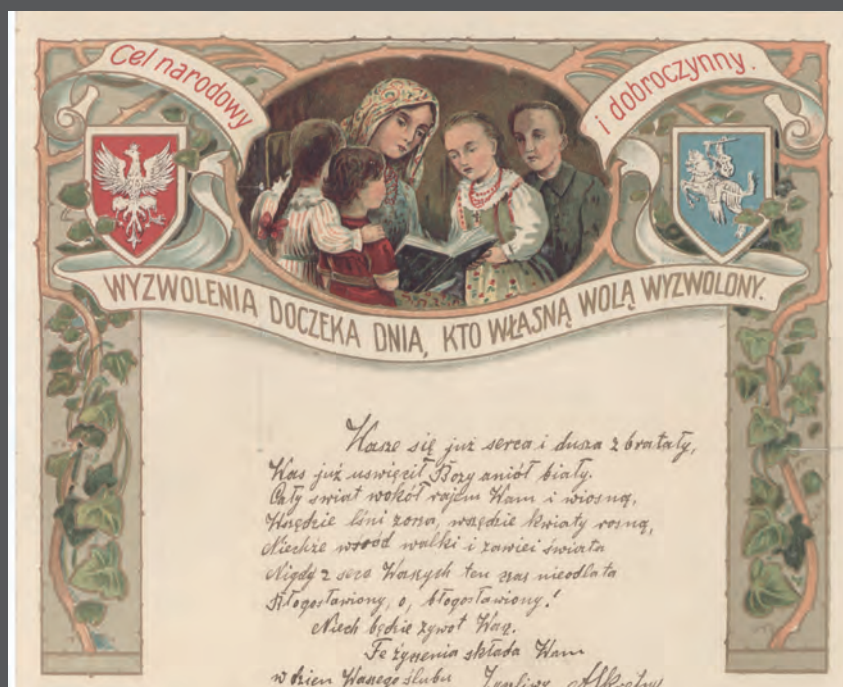 Cel narodowy
i dobroczynny.
WYZWOLENIA DOCZEKA DNIA, KTO WŁASNĄ WOLĄ WYZWOLONY.
Wasze się już serca i dusza zbratały,
Was już uswięcił Boży aniół biały.
Cały swiat wokół rajem Wam i wiosną,
Wszędzie lśni zorza, wszędzie kwiaty rosną,
Niechże wsród walki i zawiei świata
Nigdy z serc Waszych ten nieodlata
Błogosławiony, o, błogosławiony!
Niech będzie żywot Wasz.
Te życzenia składa Wam
w dzien Waszego ślubu